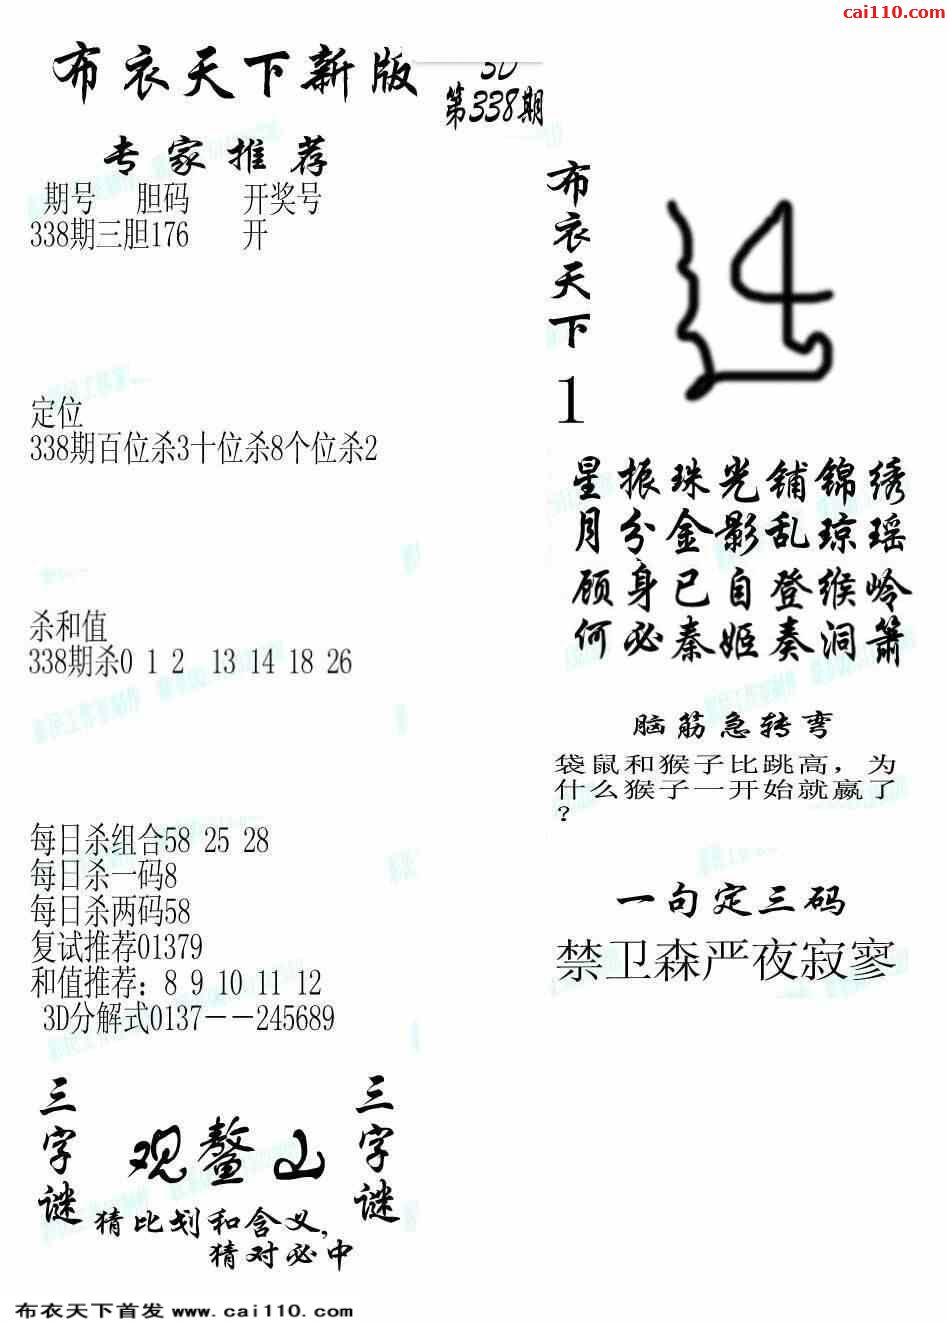 cai110.com
布衣天下新版
3D
第338期
专家推荐
期号 胆码 开奖号
338期三胆176 开
定位
338期百位杀3十位杀8个位杀2
杀和值
338期杀0 1 2 13 14 18 26
每日杀组合58 25 28
每日杀一码8
每日杀两码58
复试推荐01379
和值推荐：8 9 10 11 12
3D分解式0137－－245689
三字谜
观鳌山
三字谜
猜比划和含义，
猜对必中
布衣天下
1
星振珠光铺锦绣
月分金影乱琼瑶
顾身已自登缑岭
何必秦姬奏洞箫
脑筋急转弯
袋鼠和猴子比跳高，为
什么猴子一开始就赢了
？
一句定三码
禁卫森严夜寂寥
布衣天下首发 www.cai110.com